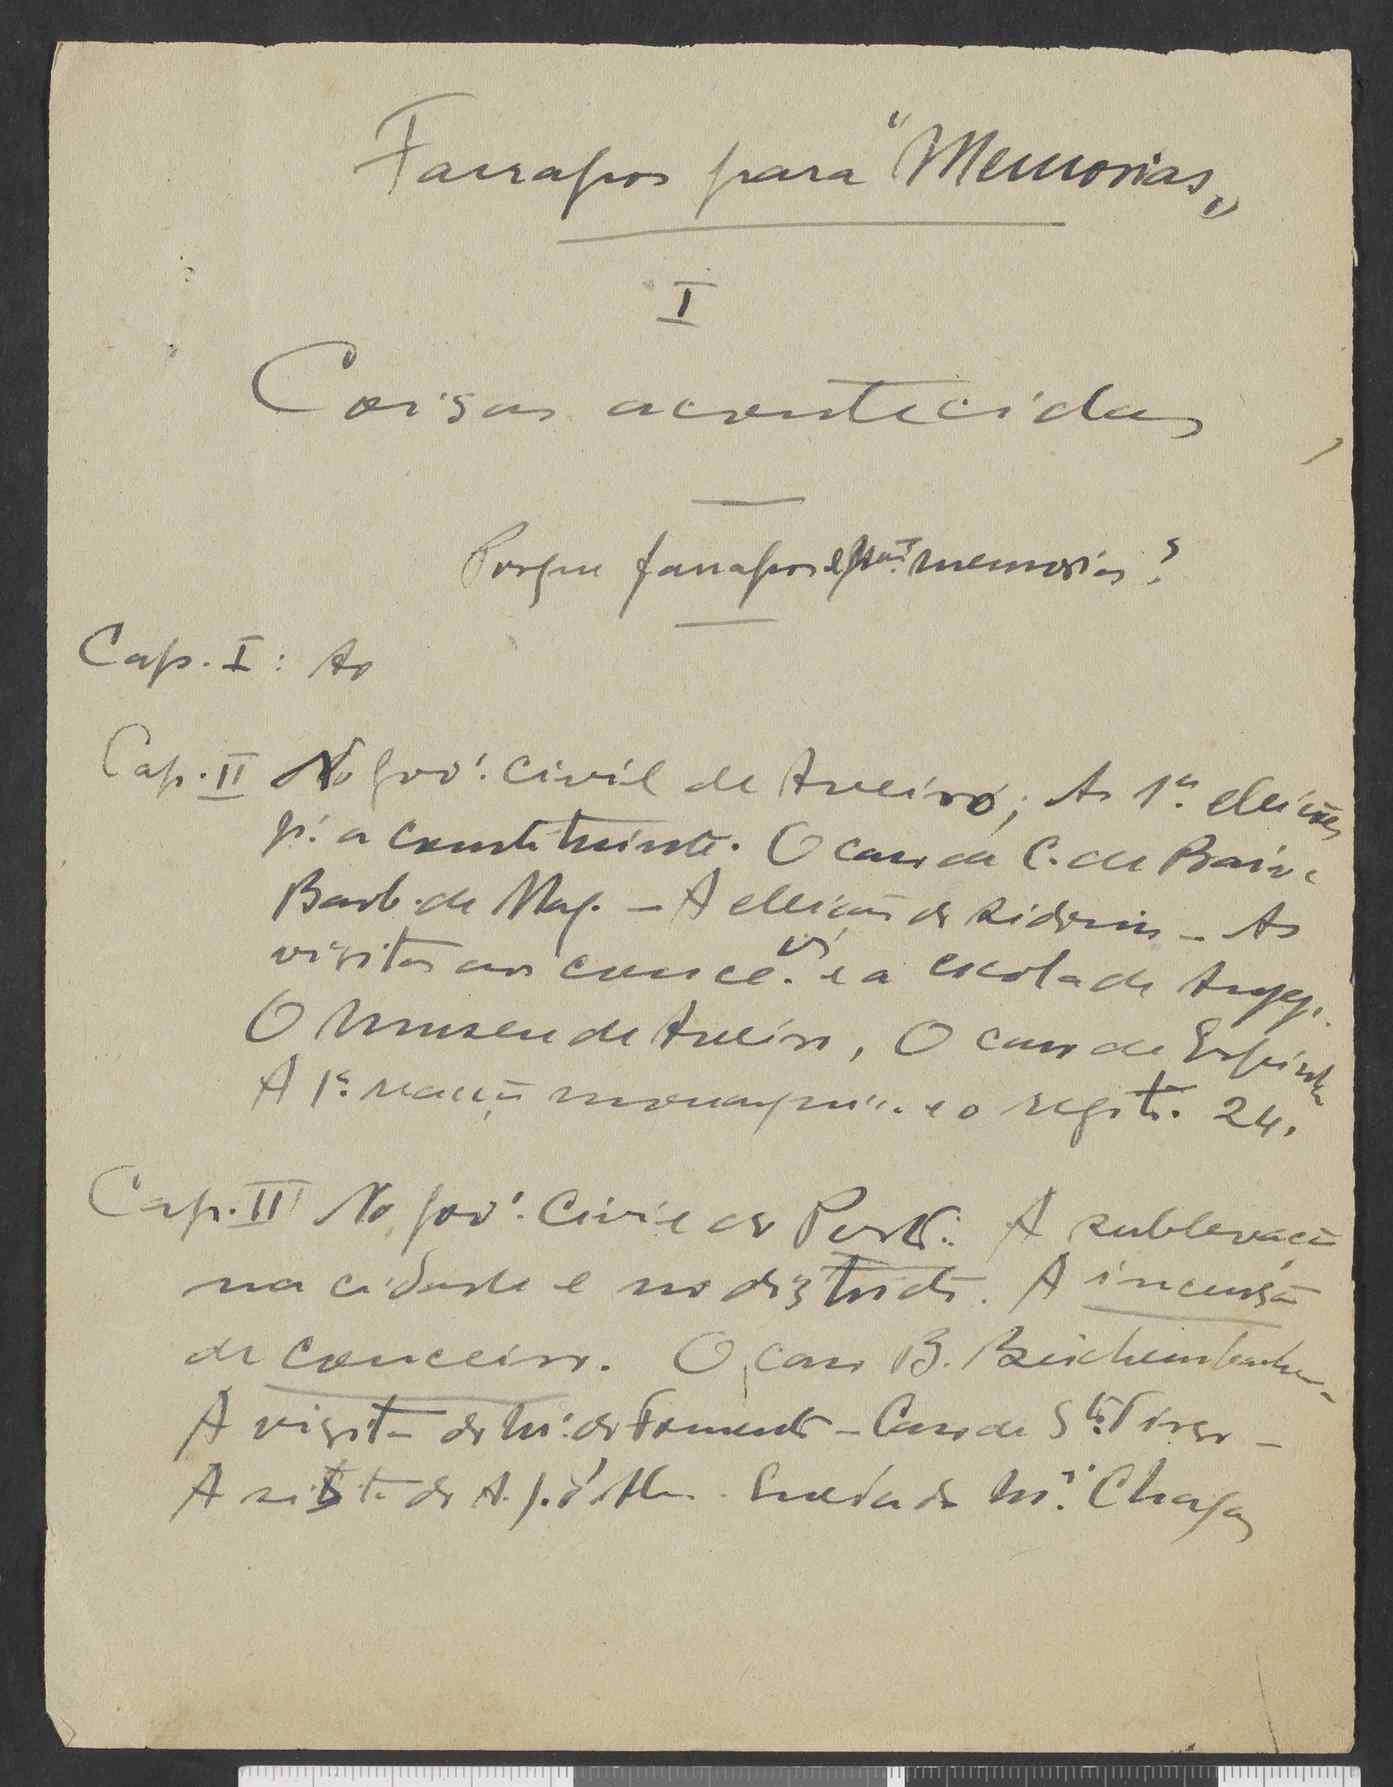 Farrapos para "Memorias„
I
Coisas acontecidas
Porque farrapos e memorias?
Cap. I: As
Cap. II No gov.º civil de Aveiro; As 1.as eleições
p.ª a constituinte. O caso de C. de Paiva
Barb. de Mag. – A eleição de Sidonio – As
visitas aos conce.os e a escola de
O Museu de Aveiro, O caso de Espinho
A 1.ª reacção e o regit.º 24.
Cap. III No gov.º Civil do Porto: A sublevação
na cidade e no districto. A incursão
de Couceiro. O caso B.
A visita do M.º do Fomento – Caso de S.to Tirso –
A visita do A. J. d'Alm. Queda do M.º Chagas